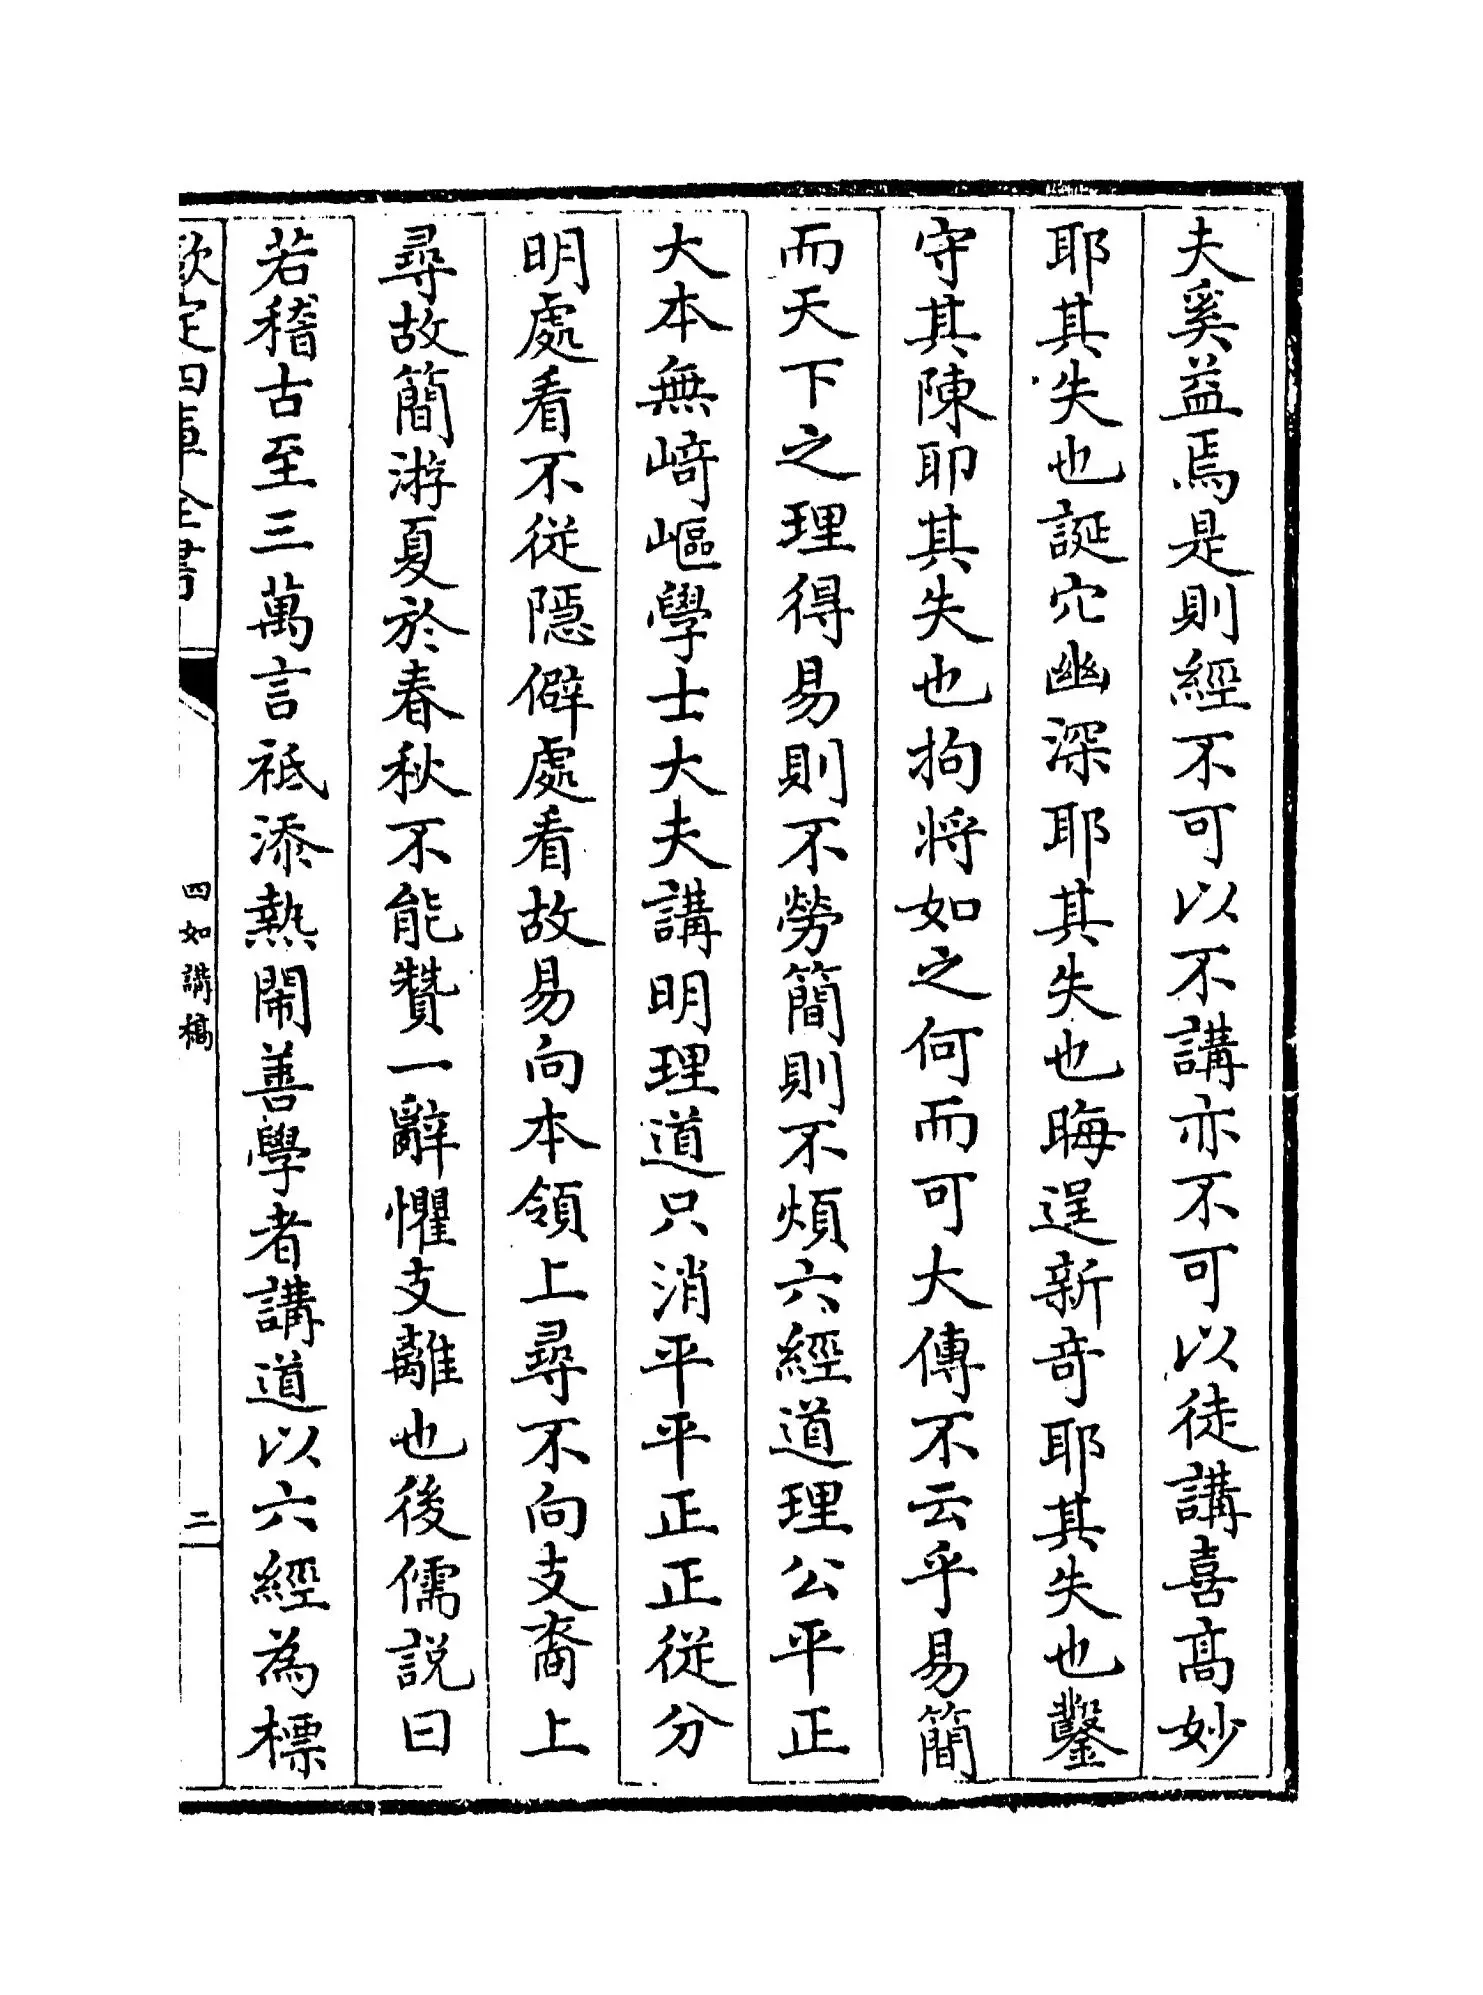 夫奚益焉是則經不可以不講亦不可以徒講喜髙妙
耶其失也誕穴幽深耶其失也晦逞新竒耶其失也鑿
守其陳耶其失也拘將如之何而可大傳不云乎易簡
而天下之理得易則不勞簡則不煩六經道理公平正
大本無﨑嶇學士大夫講明理道只消平平正正從分
明處看不從隱僻處看故易向本領上尋不向支裔上
尋故簡游夏於春秋不能贊一辭懼支離也後儒説曰
若稽古至三萬言祗添熱鬧善學者講道以六經為標
欽定四庫全書
四如講稿
二